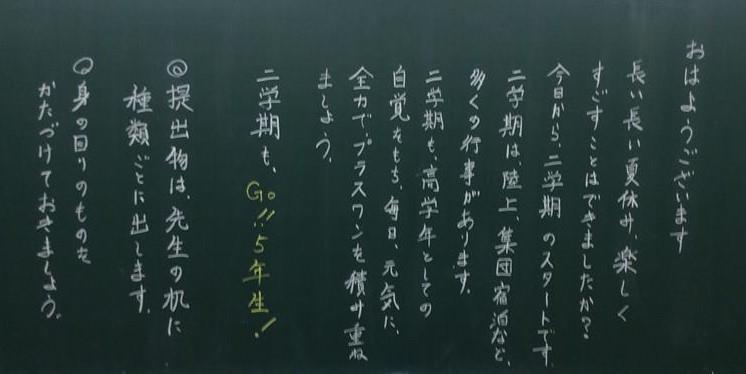 おはようございます
長い長い夏休み、楽しく
すごすことはできましたか？
今日から、二学期のスタートです。
二学期は、陸上、集団宿泊など、
多くの行事があります。
二学期も、高学年としての
自覚をもち、毎日、元気に、
全力で、プラスワンを積み重ね
ましょう。
二学期も、Go!!5年生！
◎提出物は、先生の机に
種類ごとに出します。
○身の回りのものを
かたづけておきましょう。